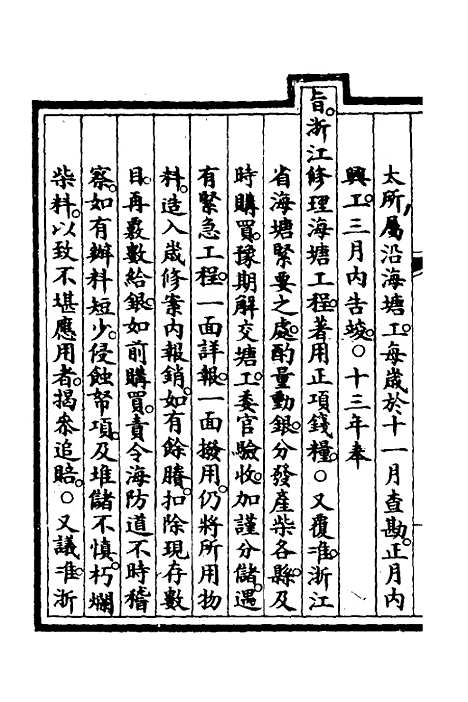 太所屬沿海塘工。每歲於十一月查勘。正月内
興工。三月内告竣。○十三年奉
旨。浙江修理海塘工程。著用正項錢糧。○又覆准。浙江
省海塘緊要之處。酌量動銀。分發產柴各縣。及
時購買。豫期解交塘工。委官驗收。加謹分儲。遇
有緊急工程。一面詳報。一面撥用。仍將所用物
料。造入歲修案内報銷。如有餘賸。扣除現存數
目。再覈數給銀。如前購買。責令海防道不時稽
察。如有辦料短少。侵蝕帑項。及堆儲不慎。朽爛
柴料。以致不堪應用者。揭參追賠。○又議准。浙